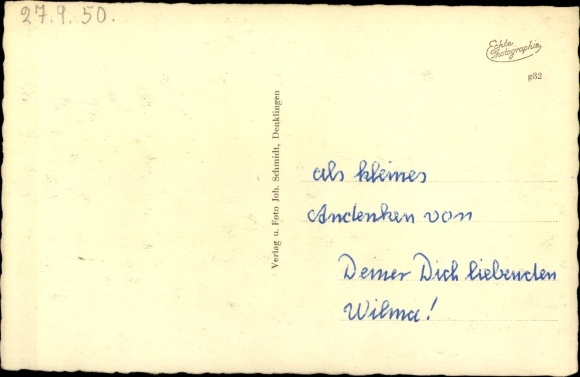 27.9.50.
Echte
Photographie
g82
Verlag u. Foto Joh. Schmidt, Denklingen
als kleines
Andenken von
Deiner Dich liebenden
Wilma!